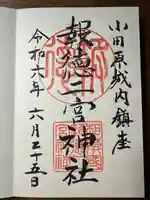 小田原城内鎮座
報徳二宮神社
令和六年六月二十五日